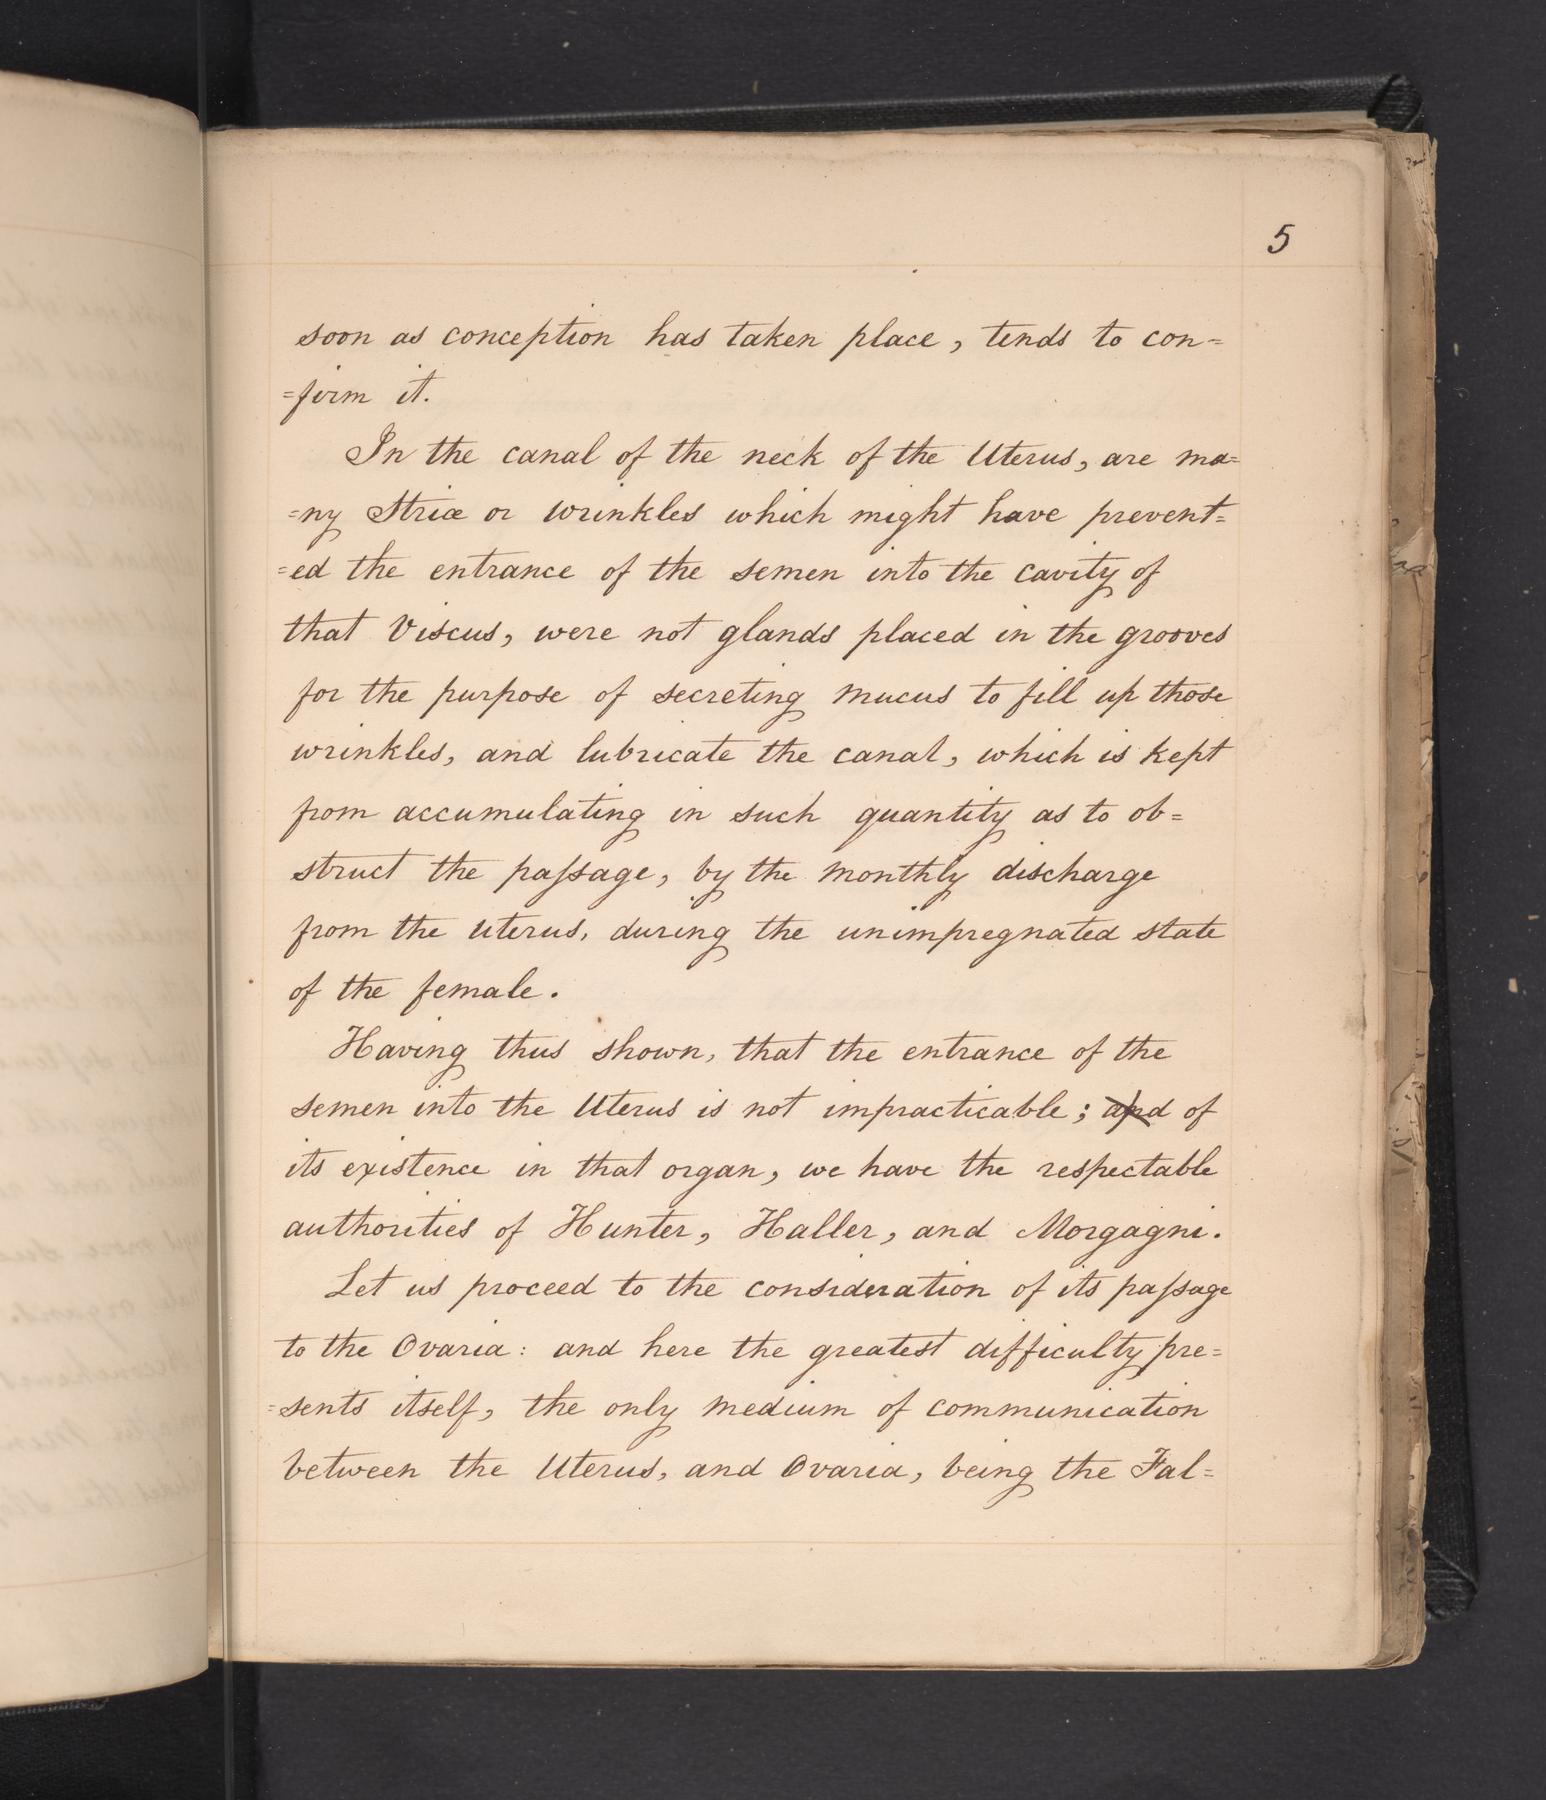 5
soon as conception has taken place, tends to con=
=firm it.
In the canal of the neck of the Uterus, are ma=
=ny Striæ or wrinkles which might have prevent=
=ed the entrance of the semen into the cavity of
that Viscus, were not glands placed in the grooves
for the purpose of secreting mucus to fill up those
wrinkles, and lubricate the canal, which is kept
from accumulating in such quantity as to ob=
struct the paſsage, by the monthly discharge
from the uterus, during the unimpregnated state
of the female.
Having thus shown, that the entrance of the
semen into the Uterus is not impracticable; and of
its existence in that organ, we have the respectable
authorities of Hunter, Haller, and Morgagni.
Let us proceed to the consideration of its paſsage
to the Ovaria: and here the greatest difficulty pre=
=sents itself, the only medium of communication
between the Uterus, and Ovaria, being the Fal=